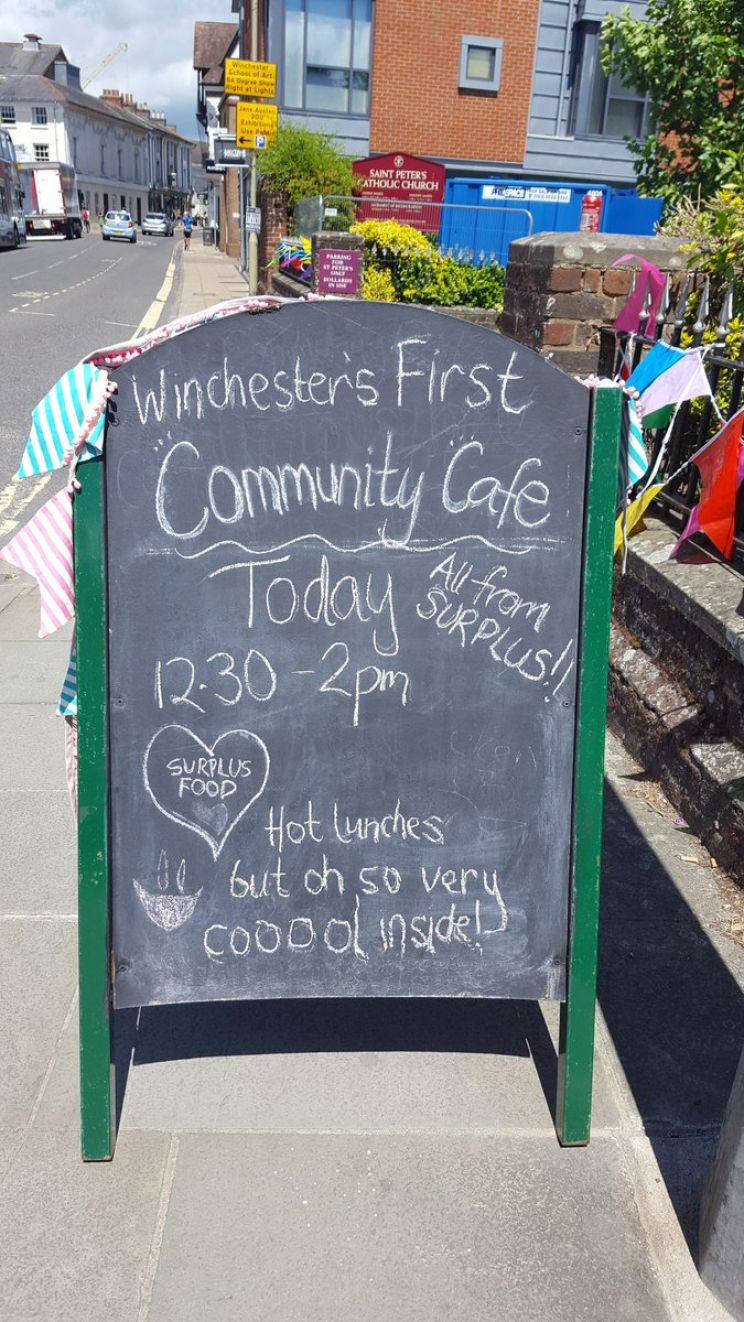 Winchester
School of Art
BA Degree Show
Right at Lights
Jane Austen
200
Exhibition
SAINT PETER'S
CATHOLIC CHURCH
PARKING
FOR
ST PETER'S
ONLY
BOLLARDS
IN USE
Winchester's First
"Community Cafe"
Today
All from
SURPLUS!!
12.30 - 2pm
SURPLUS
FOOD
Hot lunches
but oh so very
cooool inside!